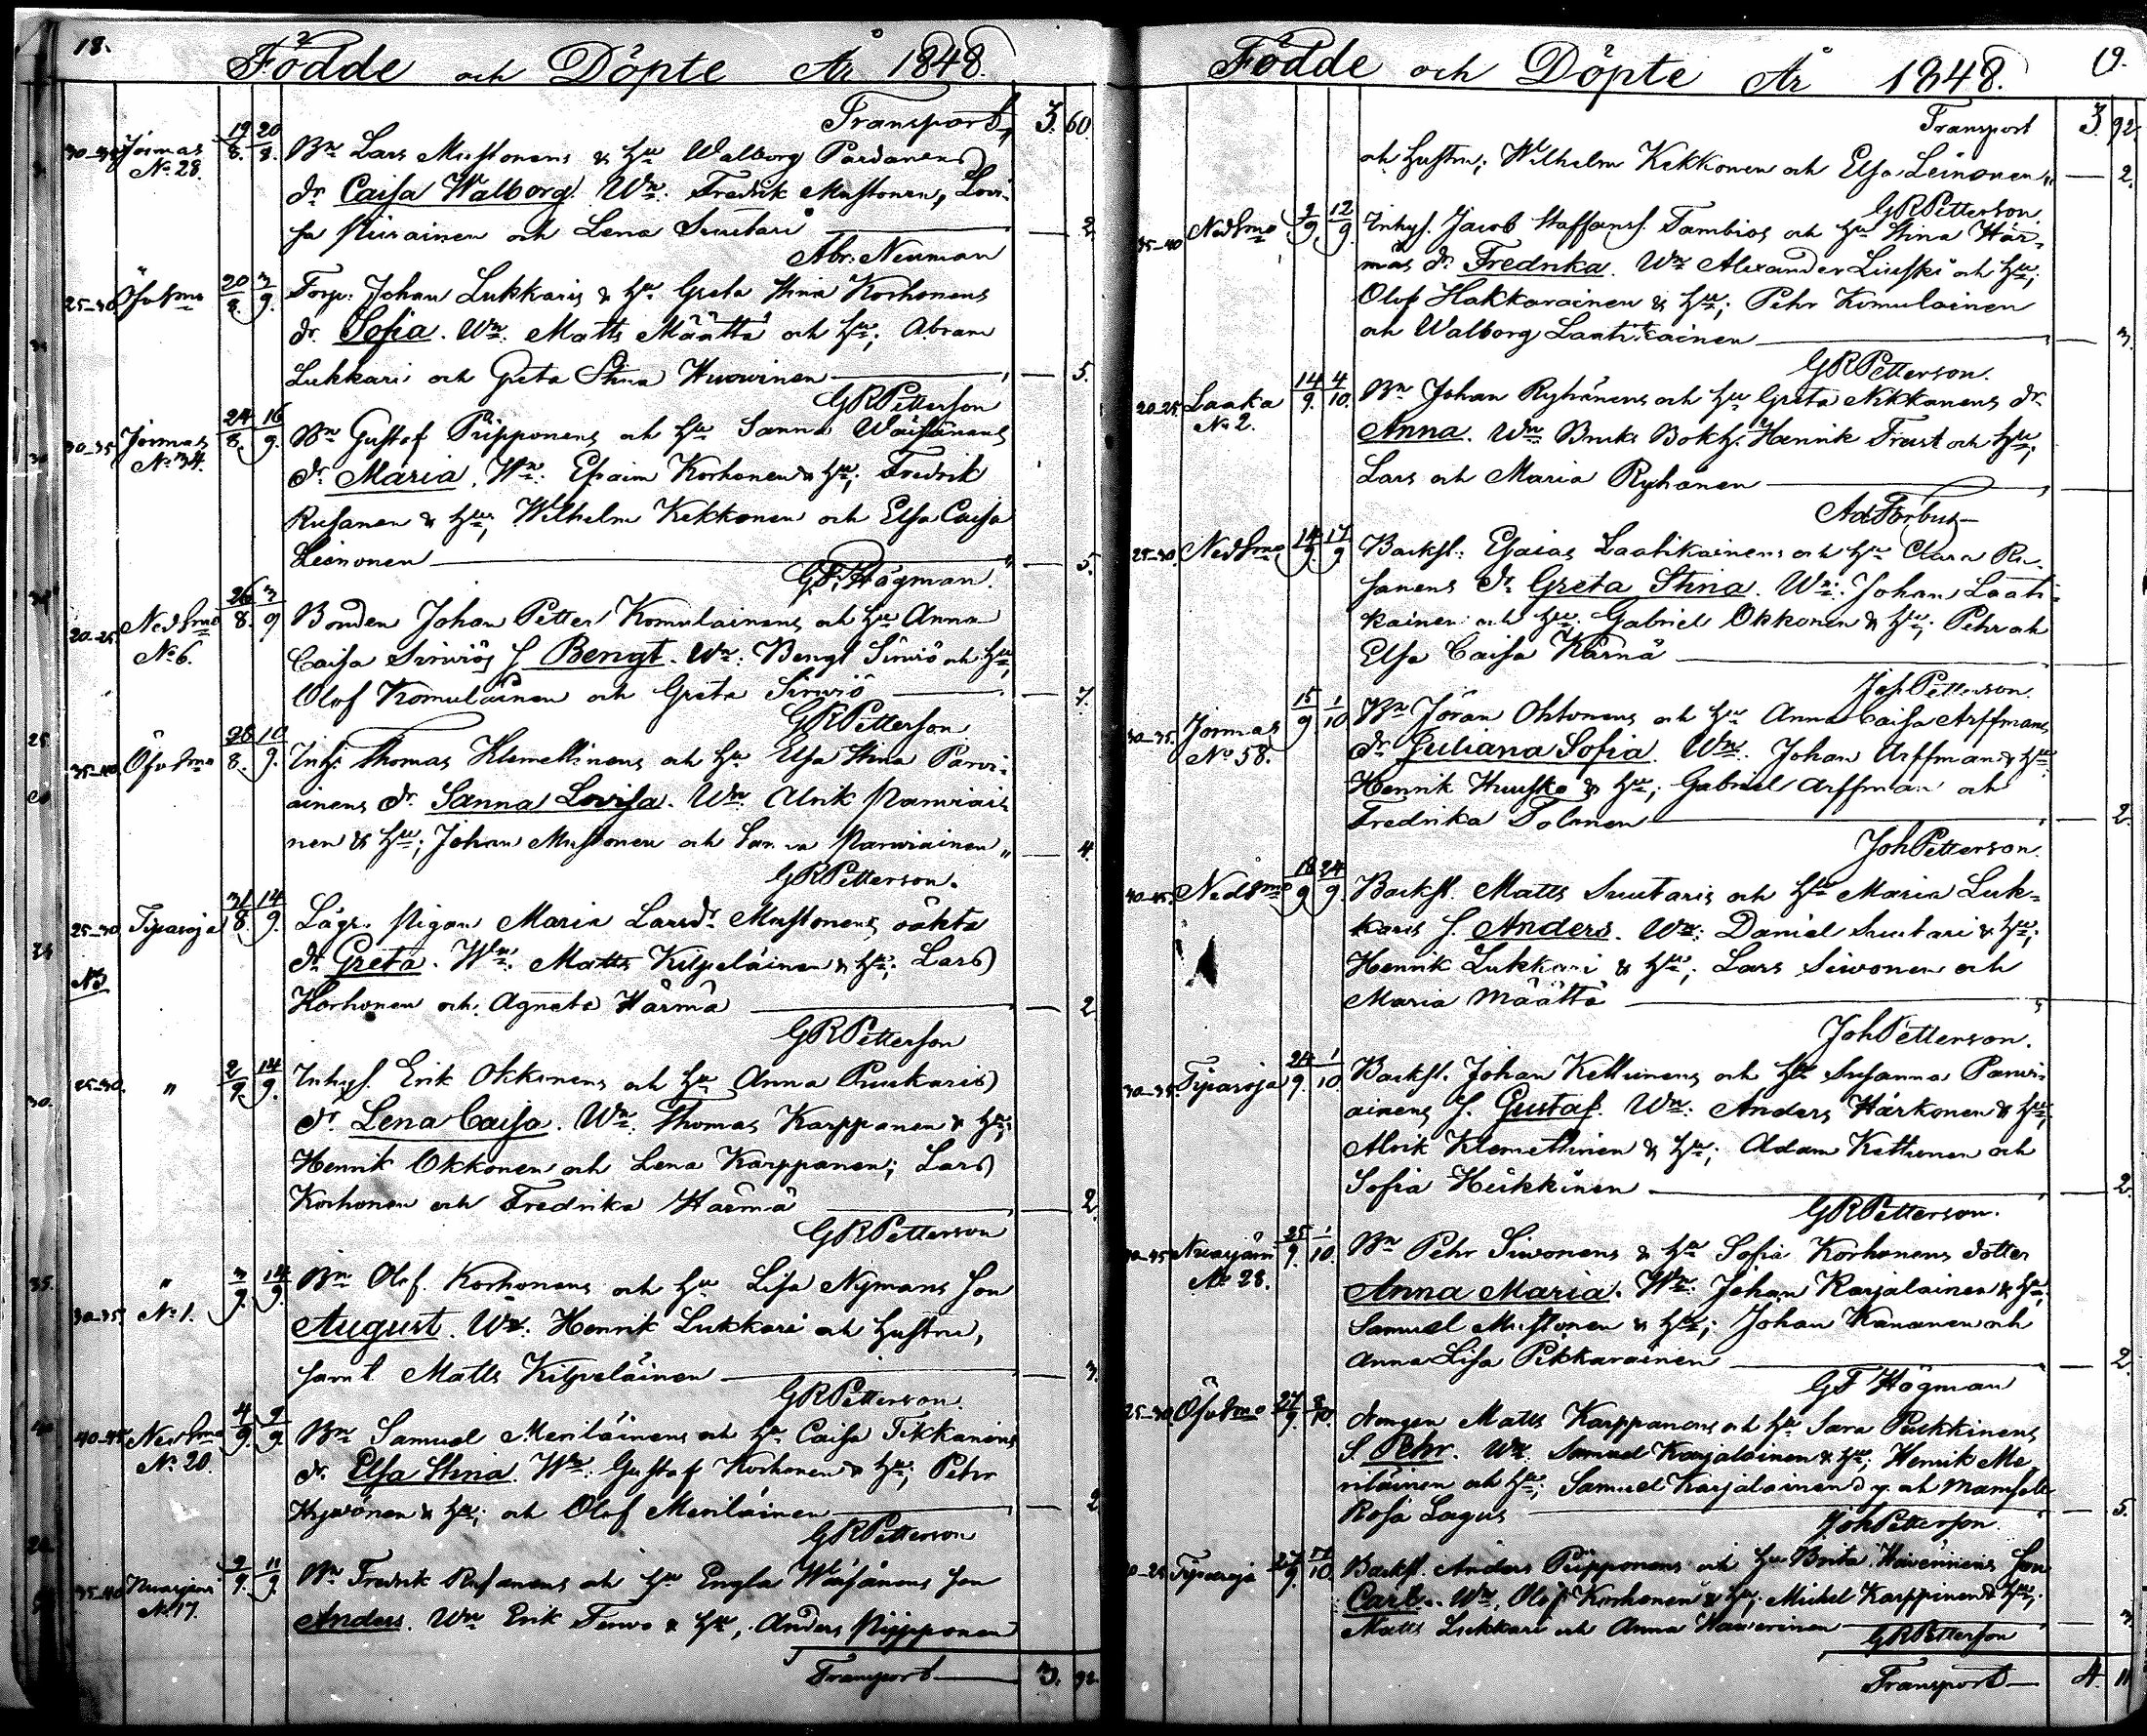 18.
Födde och Döpte År 1848.
Transport, 3. 60.
30-35 Jormas 19/8. 20/8. Bn Lars Mustonens & hu Walborg Pardanens
No 28. dr Caisa Walborg. Wn: Fredrik Mustonen, Lovi-
sa Piirainen och Lena Suutari — 2.
Abr: Neuman
25-30. Öfv Smo 20/8. 3/9. Torp. Johan Lukkaris & hu Greta Stina Korhonens
dr. Sofia. Wn. Matts Määttä och hu; Abram
Lukkari och Greta Stina Huovinen — 5.
GRPetterson
30-35 Jormas 24/8. 16/9. Bn Gustaf Piipponens och hu Sanna Wäisänens
No 34. dr Maria. Wn: Efraim Korhonen & hu; Fredrik
Rusanen & hu; Wilhelm Kekkonen och Elsa Caisa
Leinonen — 5.
G.F. Högman.
20-25. Ned Smo 26/8. 3/9 Bonden Johan Petter Komulainens och hu Anna
No 6. Caisa Sirviös S Bengt. Wn: Bengt Sirviö och hu,
Olof Komulainen och Greta Sirviö — 7.
GRPetterson.
35-40. Öfv Smo 28/8. 10/9. Inh: Thomas Klemettinens och hu Elsa Stina Parvi-
ainens dr. Sanna Lovisa. Wn. Alrik Parviai-
nen & hu; Johan Mustonen och Sanna Parviainen „ — 4.
GRPetterson.
25-30 Tipasoja 31/8. 14/9. Lägr. pigan Maria Larsdr Mustonens oäkta
dr Greta. Wn: Matts Kilpeläinen & hu; Lars
Korhonen och Agneta Härmä — 2
GRPetterson
25-30. „ 2/9. 14/9. Inhys. Erik Okkonens och hu Anna Puukaris
dr Lena Caisa. Wn. Thomas Karppanen & hu;
Henrik Okkonen och Lena Karppanen; Lars
Korhonen och Fredrika Härmä — 2.
GRPetterson
30-35. „ No 1. 3/9. 14/9. Bn Olof Korhonens och hu Lisa Nymans son
August. Wn: Henrik Lukkari och hustru,
samt Matts Kilpeläinen — 3.
GRPetterson.
40-45 Ned Smo 4/9. 9/9. Bn Samuel Meriläinens och hu Caisa Tikkanens
No 20. dr Elsa Stina. Wn: Gustaf Korhonen & hu; Petter
Hyvönen & hu; och Olof Meriläinen — 2
GRPetterson
35-40 Nuasjärvi 9/9. 11/9. Bn Fredrik Rusanens och hu Engla Wäisänens son
No 17. Anders. Wn Erik Tervo & hu, Anders Piipponen
Transport — 3. 92.
19.
Födde och Döpte År 1848.
Transport 3. 92.
och hustru; Wilhelm Kekkonen och Elsa Leinonen „ — 2.
GRPetterson.
35-40 Ned Smo 9/9. 12/9. Inhys. Jacob Staffans. Tambios och hu Stina Här-
mäs dr Fredrika. Wn Alexander och hu;
Olof Hakkarainen & hu; Pehr Komulainen
och Walborg Laatikainen — 3.
GRPetterson.
20-25 Laaka 14/9. 4/10. Bn Johan Ryhänens och hu Greta Nikkanens dr.
No 2. Anna. Wn Bruks Bokh. Henrik Trast och hu;
Lars och Maria Ryhänen —
Ad Forbus
25-30. Ned Smo 14/9. 17/9. Backst: Esaias Laatikainens och hu Clara Ru-
sanens dr Greta Stina. Wn: Johan Laati-
kainen och hu; Gabriel Okkonen & hu; Pehr och
Elsa Caisa Kärnä —
Joh Petterson.
30-35. Jormas 15/9 1/10 Bn Jöran Ohtonens och hu Anna Caisa Arffmans
No 58. dr Juliana Sofia. Wn: Johan Arffman & hu
Henrik Huusko & hu; Gabriel Arffman och
Fredrika Tolonen — 2.
Joh Petterson.
40-45. Ned Smo 18/9 24/9. Backst. Matts Suutaris och hu Maria Luk-
karis S. Anders. Wn: Daniel Suutari & hu;
Henrik Lukkari & hu; Lars Sivonen och
Maria Määttä —
Joh Petterson.
30-35. Tipasoja 24/9. 1/10 Backst. Johan Kettunens och hu Susanna Parvi-
ainens S. Gustaf. Wn: Anders Härkönen & hu;
Alrik Klemettinen & hu; Adam Kettunen och
Sofia Heikkinen — 2.
GRPetterson.
Nuasjärvi 25/9. 1/10. Bn Pehr Sivonens & hu Sofia Korhonens dotter
No 28. Anna Maria. Wn: Johan Karjalainen & hu;
Samuel Mustonen & hu; Johan Kananen och
Anna Lisa Pikkarainen — 2.
GF Högman
25-30 Öfv Smo 27/9. 8/10. Drengen Matts Karppanens och hu Sara Pulkkinens
S. Pehr. Wn: Samuel Karjalainen & hu; Henrik Me-
riläinen och hu; Samuel Karjalainen d.y. och Mamsell
Rosa Lagus — 5.
Joh Petterson.
20-25 Tipasoja 27/9. 17/10 Backst. Anders Piipponens och hu Brita Haverinens son
Carl. Wn. Olof Korhonen & hu; Michel Karppinen & hu;
Matts Lukkari och Anna Haverinen — 3.
GRPetterson
Transport — 4. 11